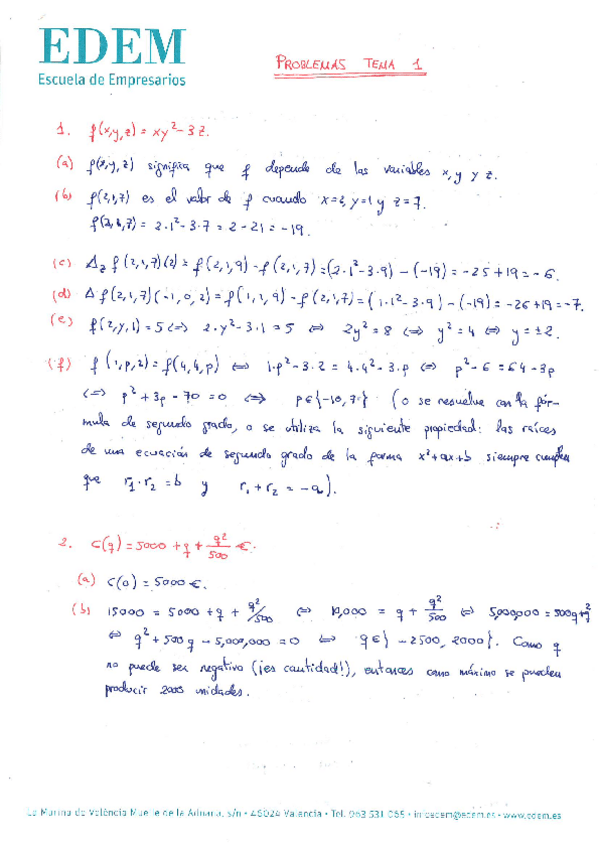 EDEM
Escuela de Empresarios
PROBLEMAS TEMA 1
1. f(x,y,z) = xy²-3z.
(a) f(x,y,z) significa que f depende de las variables x, y y z.
(b) f(2,1,7) es el valor de f cuando x=2, y=1 y z=7.
f(2,1,7) = 2·1²-3·7 = 2-21 = -19.
(c) Δz f(2,1,7)(2) = f(2,1,9) - f(2,1,7) = (2·1²-3·9) - (-19) = -25+19 = -6.
(d) Δ f(2,1,7)(-1,0,2) = f(1,1,9) - f(2,1,7) = (1·1²-3·9) - (-19) = -26+19 = -7.
(e) f(2,y,1) = 5 ⇔ 2·y²-3·1 = 5 ⇔ 2y² = 8 ⇔ y² = 4 ⇔ y = ±2.
(f) f(1,p,2) = f(4,4,p) ⇔ 1·p²-3·2 = 4·4²-3·p ⇔ p²-6 = 64-3p
⇔ p²+3p-70 = 0 ⇔ p∈{-10,7} (o se resuelve con la fór-
mula de segundo grado, o se utiliza la siguiente propiedad: las raíces
de una ecuación de segundo grado de la forma x²+ax+b siempre cumplen
que r₁·r₂ = b y r₁+r₂ = -a).
2. C(q) = 5000 + q + q²/500 €.
(a) C(0) = 5000 €.
(b) 15000 = 5000 + q + q²/500 ⇔ 10,000 = q + q²/500 ⇔ 5,000,000 = 500q+q²
⇔ q²+500q-5,000,000 = 0 ⇔ q∈{-2500, 2000}. Como q
no puede ser negativo (¡es cantidad!), entonces como máximo se pueden
producir 2000 unidades.
La Marina de València Muelle de la Aduana, s/n • 46024 Valencia • Tel. 963 531 065 • infoedem@edem.es • www.edem.es